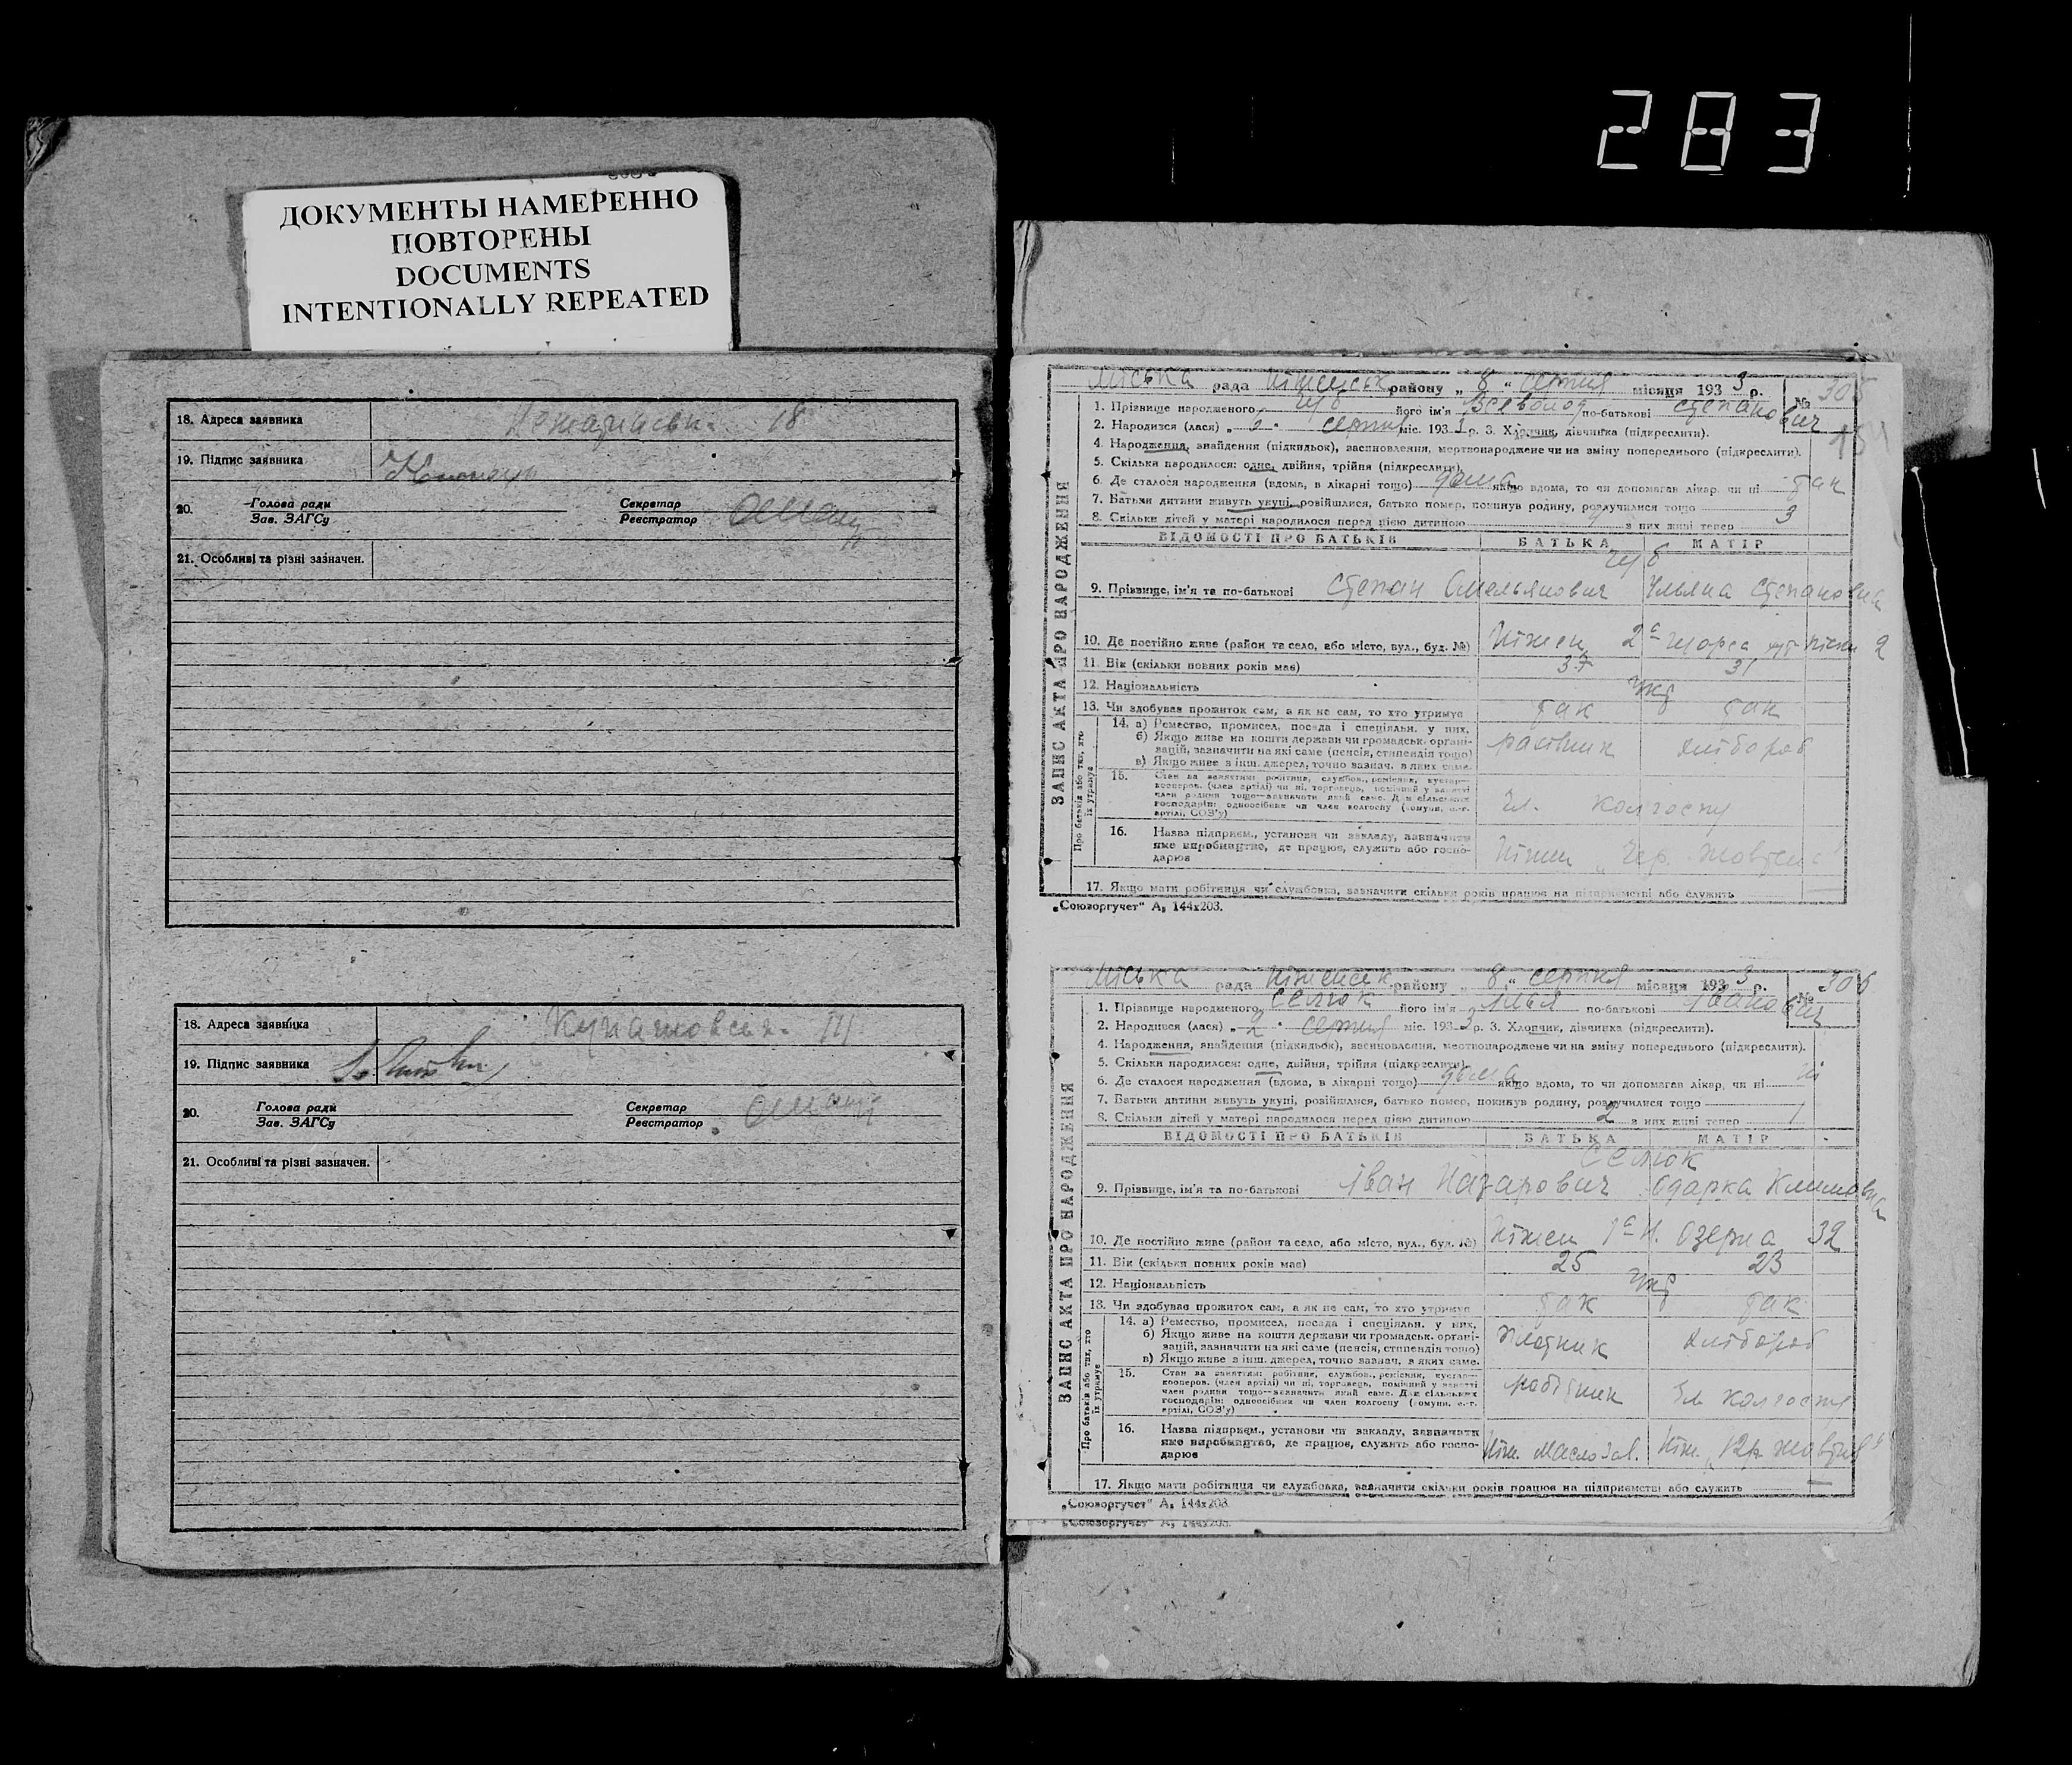 283
ДОКУМЕНТЫ НАМЕРЕННО
ПОВТОРЕНЫ
DOCUMENTS
INTENTIONALLY REPEATED
18. Адреса заявника 18
19. Підпис заявника
20. Голова ради Секретар
Зав. ЗАГСу Реєстратор
21. Особливі та різні зазначен.
18. Адреса заявника
19. Підпис заявника
20. Голова ради Секретар
Зав. ЗАГСу Реєстратор
21. Особливі та різні зазначен.
ЗАПИС АКТА ПРО НАРОДЖЕННЯ
Міська рада Ніженськ району „ 8 “ серпня місяця 193 3 р. № 305
1. Прізвище народженого його ім'я Всеволод по-батькові Степанович
2. Народився (лася) „ серпня міс. 193 3 р. 3. Хлопчик, дівчинка (підкреслити).
4. Народження, знайдення (підкидьок), засиновлення, мертвонароджене чи на зміну попереднього (підкреслити).
5. Скільки народилося: одне, двійня, трійня (підкреслити)
6. Де сталося народження (вдома, в лікарні тощо) дома якщо вдома, то чи допомагав лікар, чи ні так
7. Батьки дитини живуть укупі, розійшлися, батько помер, покинув родину, розлучилися тощо
8. Скільки дітей у матері народилося перед цією дитиною з них живі тепер 3
ВІДОМОСТІ ПРО БАТЬКІВ БАТЬКА МАТІР
9. Прізвище, ім'я та по-батькові Степан Омельянович Ульяна Степановна
10. Де постійно живе (район та село, або місто, вул., буд. №) Ніжен
11. Вік (скільки повних років має) 37 31
12. Національність укр
13. Чи здобуває прожиток сам, а як не сам, то хто утримує так так
Про батьків або тих, хто їх утримує
14. а) Ремество, промисел, посада і спеціяльн. у них.
б) Якщо живе на кошти держави чи громадськ. органі-
зацій, зазначити на які саме (пенсія, стипендія тощо) хлібороб
в) Якщо живе з інш. джерел, точно зазнач. з яких саме.
15. Стан за заняттям: робітник, службов., ремісник, кустар—
кооперов. (член артілі) чи ні, торговець, помічний у занятті
член родини тощо—зазначити який саме. Для сільських
господарів: одноосібник чи член колгоспу (комуни, с.-г.
артілі, СОЗ'у) Чл. колгоспу
16. Назва підприєм., установи чи закладу, зазначити
яке виробництво, де працює, служить або госпо-
дарює Ніжен
17. Якщо мати робітниця чи службовка, зазначити скільки років працює на підприємстві або служить
„Союзоргучет“ А₅ 144x203.
ЗАПИС АКТА ПРО НАРОДЖЕННЯ
Міська рада Ніженськ району „ 8 “ серпня місяця 193 3 р. № 306
1. Прізвище народженого Селюк його ім'я Ілья по-батькові Іванович
2. Народився (лася) „ 2 “ серпня міс. 193 3 р. 3. Хлопчик, дівчинка (підкреслити).
4. Народження, знайдення (підкидьок), засиновлення, мертвонароджене чи на зміну попереднього (підкреслити).
5. Скільки народилося: одне, двійня, трійня (підкреслити)
6. Де сталося народження (вдома, в лікарні тощо) дома якщо вдома, то чи допомагав лікар, чи ні ні
7. Батьки дитини живуть укупі, розійшлися, батько помер, покинув родину, розлучилися тощо
8. Скільки дітей у матері народилося перед цією дитиною 2 з них живі тепер 1
ВІДОМОСТІ ПРО БАТЬКІВ БАТЬКА МАТІР
Селюк
9. Прізвище, ім'я та по-батькові Іван Назарович Одарка Климовна
10. Де постійно живе (район та село, або місто, вул., буд. №) Ніжен Озерна 32
11. Вік (скільки повних років має) 25 23
12. Національність укр
13. Чи здобуває прожиток сам, а як не сам, то хто утримує так так
Про батьків або тих, хто їх утримує
14. а) Ремество, промисел, посада і спеціяльн. у них.
б) Якщо живе на кошти держави чи громадськ. органі-
зацій, зазначити на які саме (пенсія, стипендія тощо) хлібороб
в) Якщо живе з інш. джерел, точно зазнач. з яких саме.
15. Стан за заняттям: робітник, службов., ремісник, кустар—
кооперов. (член артілі) чи ні, торговець, помічний у занятті
член родини тощо—зазначити який саме. Для сільських
господарів: одноосібник чи член колгоспу (комуни, с.-г.
артілі, СОЗ'у) робітник Чл колгоспу
16. Назва підприєм., установи чи закладу, зазначити
яке виробництво, де працює, служить або госпо-
дарює Ніж. маслозав. Ніж.
17. Якщо мати робітниця чи службовка, зазначити скільки років працює на підприємстві або служить —
„Союзоргучет“ А₅ 144x203.
„Союзоргучет“ А₅ 144x203.